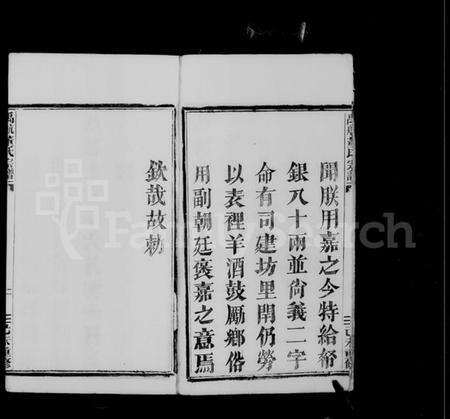 聞朕用嘉之今特給帑
銀八十兩並尚義二字
命有司建坊里閈仍勞
以表裡羊酒鼓勵鄉俗
用副朝廷褒嘉之意焉
欽哉故勅
FamilySearch